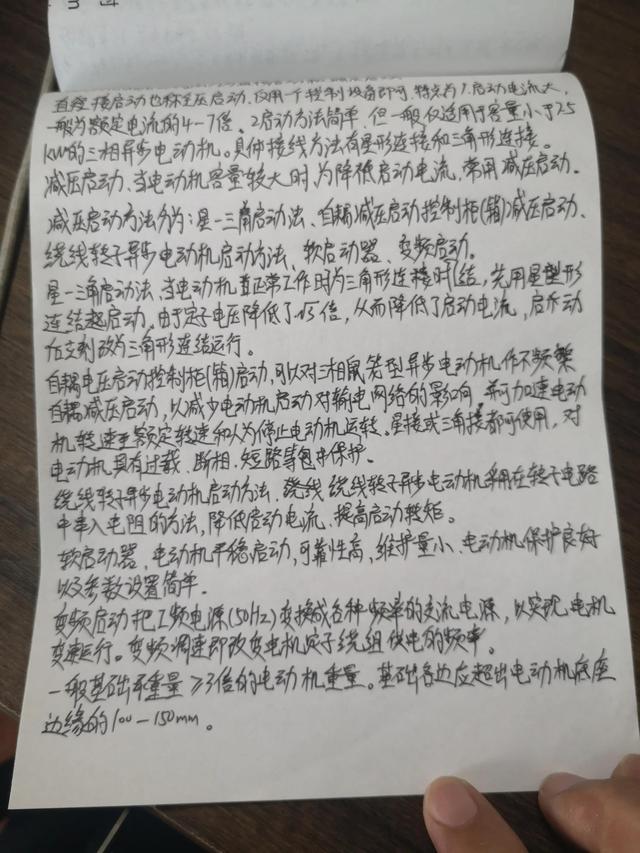 直接接启动也称全压启动.仅用一个控制设备即可.特点为1.启动电流大,
一般为额定电流的4-7倍。2启动方法简单.但一般仅适用于容量小于7.5
KW的三相异步电动机。具体接线方法有星形连接和三角形连接。
减压启动、当电动机容量较大时,为降低启动电流,常用减压启动。
减压启动方法分为:星-三角启动法、自耦减压启动控制柜(箱)减压启动、
绕线转子异步电动机启动方法、软启动器、变频启动。
星-三角启动法、当电动机在正常工作时为三角形连接时结,先用星型形
连结起启动,由于定子电压降低了√3倍,从而降低了启动电流,启动
后立刻改为三角形连结运行。
自耦电压启动控制柜(箱)启动,可以对三相鼠笼型异步电动机作不频繁
自耦减压启动,以减少电动机启动对输电网络的影响,并可加速电动
机转速至额定转速和人为停止电动机运转。星接或三角接都可使用,对
电动机具有过载、断相、短路等包中保护。
绕线转子异步电动机启动方法.绕线 绕线转子异步电动机采用在转子电路
中串入电阻的方法,降低启动电流、提高启动转矩。
软启动器、电动机平稳启动,可靠性高,维护量小、电动机保护良好
以及参数设置简单.
变频启动把工频电源(50Hz)变换成各种频率的交流电源,以实现电机
变速运行。变频调速即改变电机定子绕组供电的频率。
一般基础承重量≥3倍的电动机重量。基础各边应超出电动机底座
边缘的100-150mm。